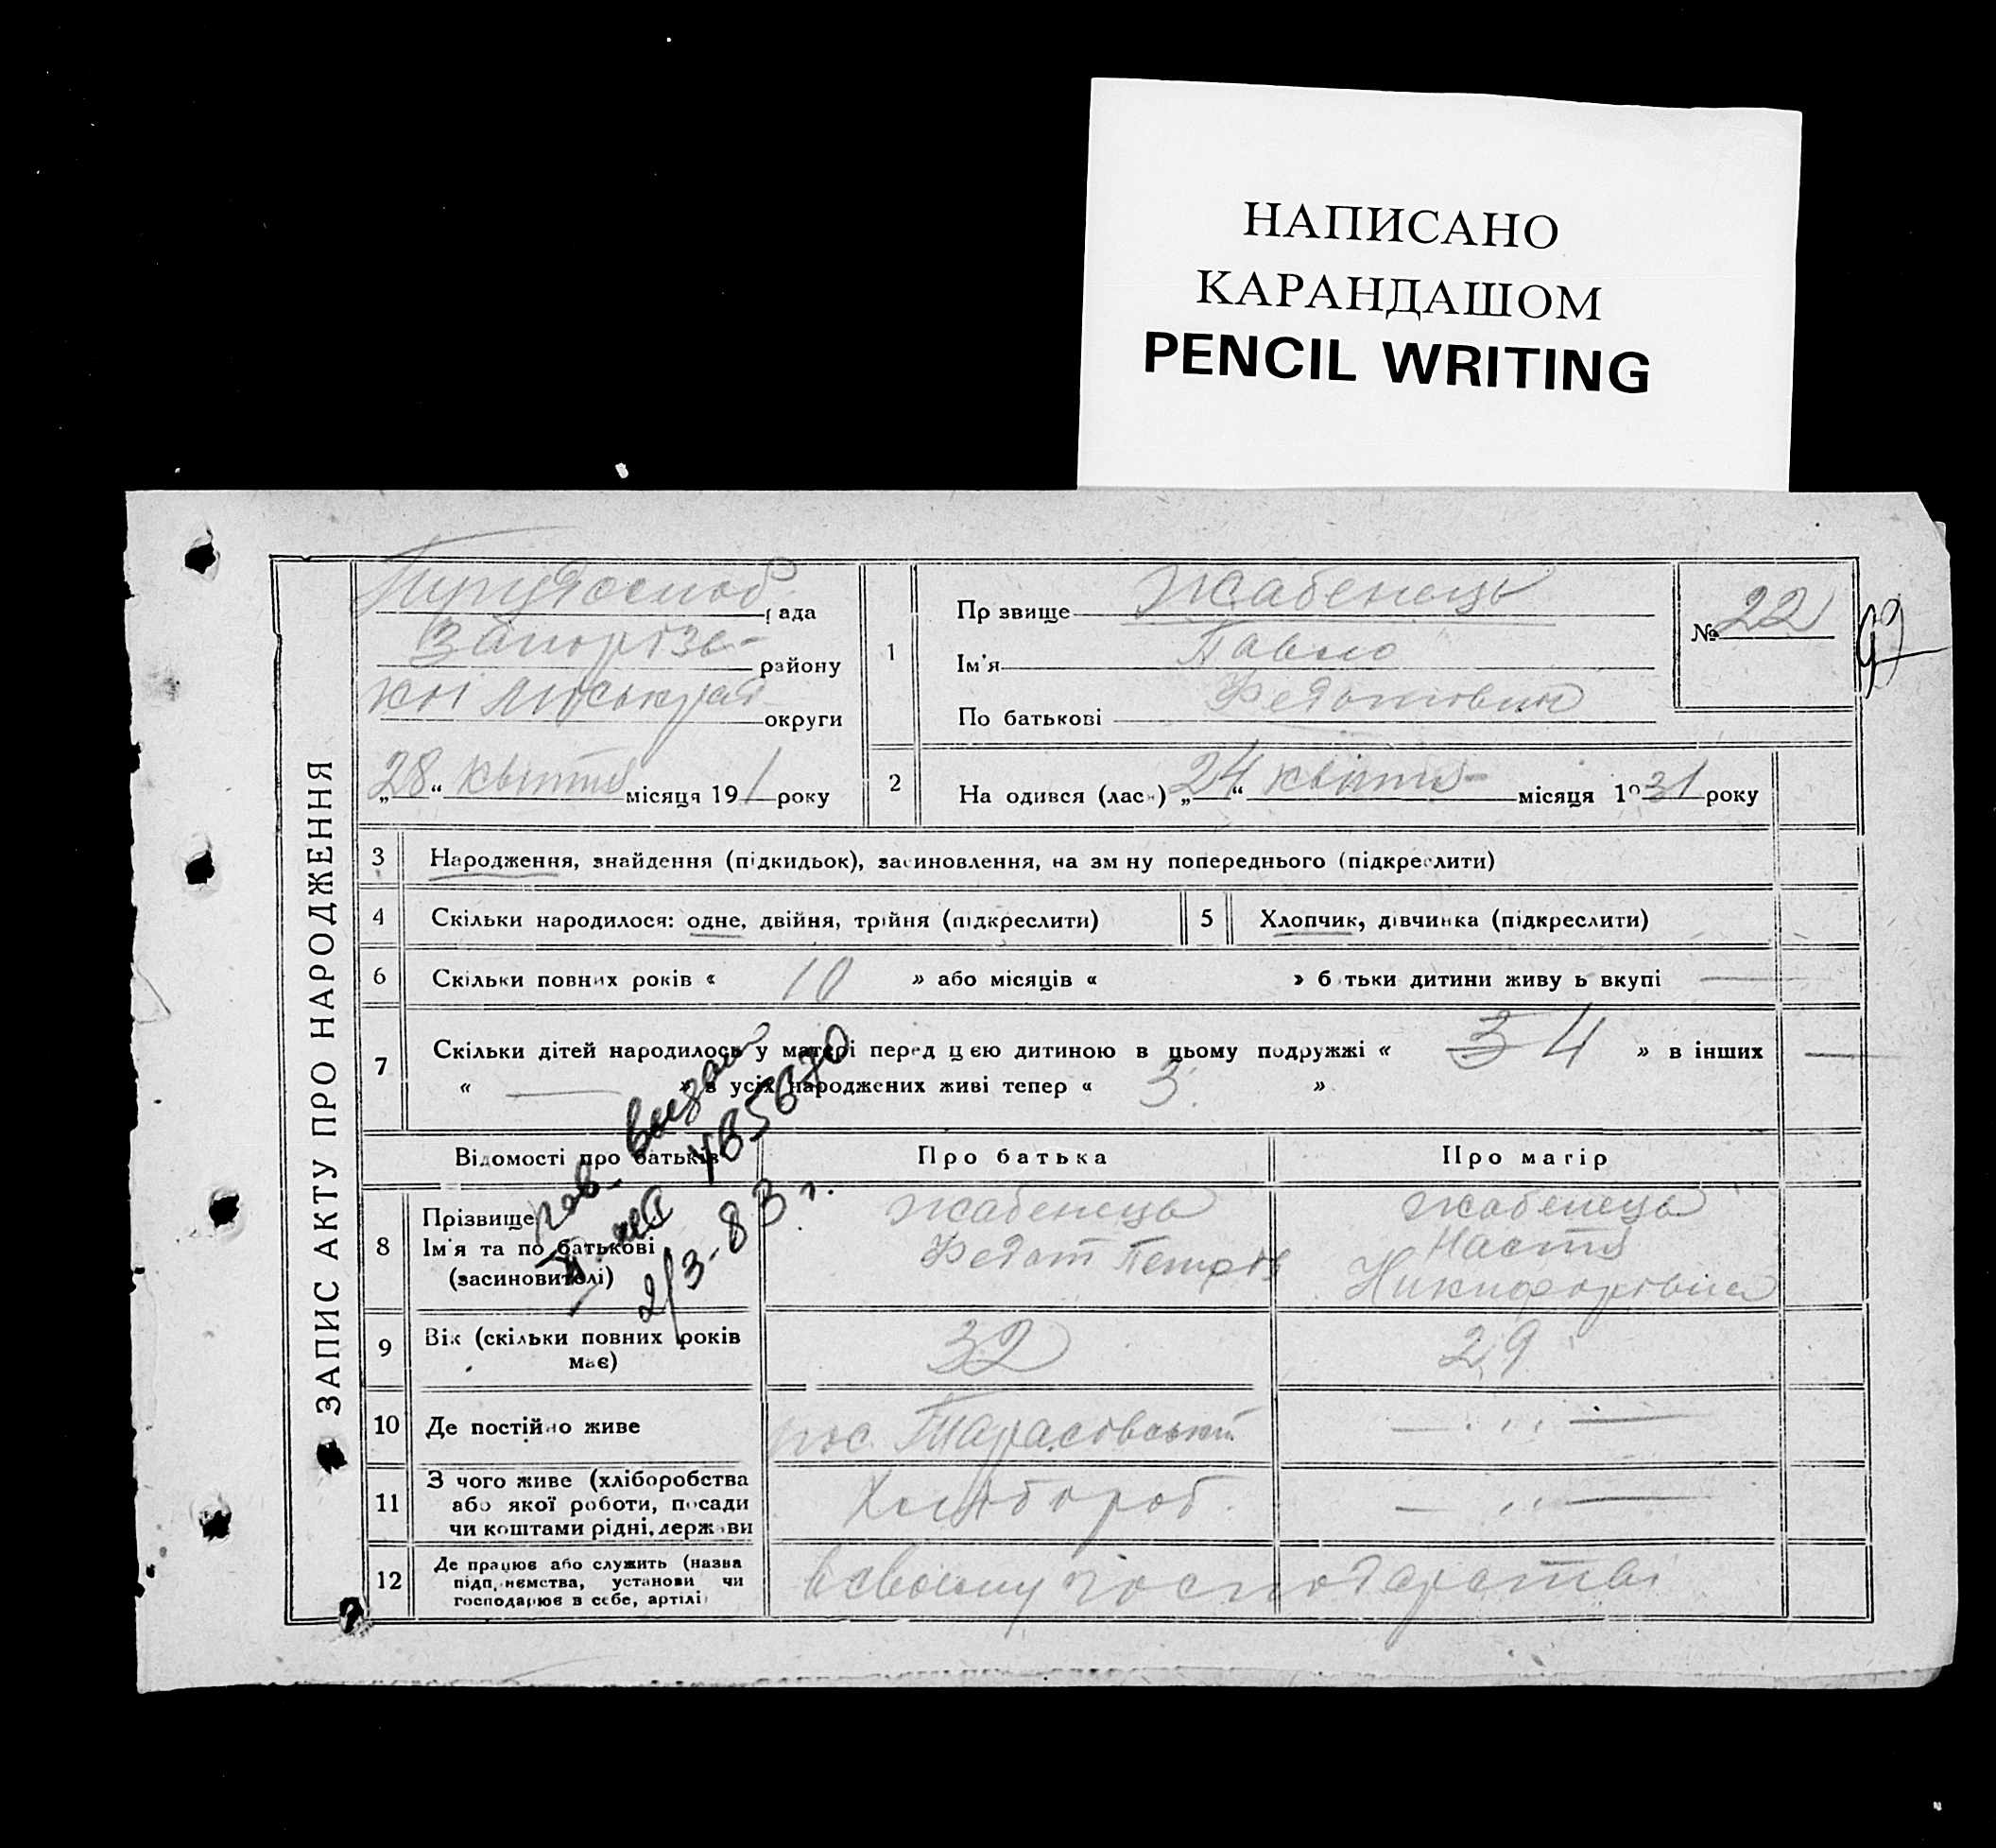 НАПИСАНО
КАРАНДАШОМ
PENCIL WRITING
ЗАПИС АКТУ ПРО НАРОДЖЕННЯ
рада
Запорізь-
району
кої міськрад
округи
„28“ квітня місяця 191 року
1
Прізвище Жабенець
Ім'я Павло
По батькові Федотович
№ 22
2
Народився (лась) „24“ квітня місяця 1931 року
3 Народження, знайдення (підкидьок), засиновлення, на зміну попереднього (підкреслити)
4 Скільки народилося: одне, двійня, трійня (підкреслити)
5 Хлопчик, дівчинка (підкреслити)
6 Скільки повних років « 10 » або місяців « » батьки дитини живуть вкупі —
7 Скільки дітей народилось у матері перед цією дитиною в цьому подружжі « 3 4 » в інших —
« — » з усіх народжених живі тепер « 3 »
Відомості про батьків
Про батька
Про матір
8 Прізвище
Ім'я та по батькові
(засиновителі)
Жабенець
Федот Петрів
Жабенець
Настя
Никифорівна
9 Вік (скільки повних років
має)
32
29
10 Де постійно живе
пос. Тарасівський
— „ —
11 З чого живе (хліборобства
або якої роботи, посади
чи коштами рідні, держави
Хлібороб.
— „ —
12 Де працює або служить (назва
підприємства, установи чи
господарює в себе, артілі)
в своєму господарстві
пов. выдан
УВ 5670
2/3-83 г.